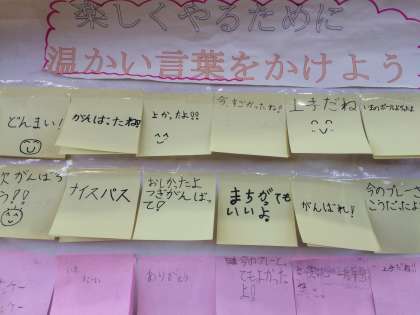 楽しくやるために
温かい言葉をかけよう
どんまい!
がんばったね
よかったよ!!
今、すごかったね!
上手だね
次がんばろ
う!!
ナイスパス
おしかったよ
つぎがんばっ
て!
まちがっても
いいよ
がんばれ!
今のプレーさ
こうだったよ
ありがとう
今のプレーと
てもよかった
よ!
上手だね!!